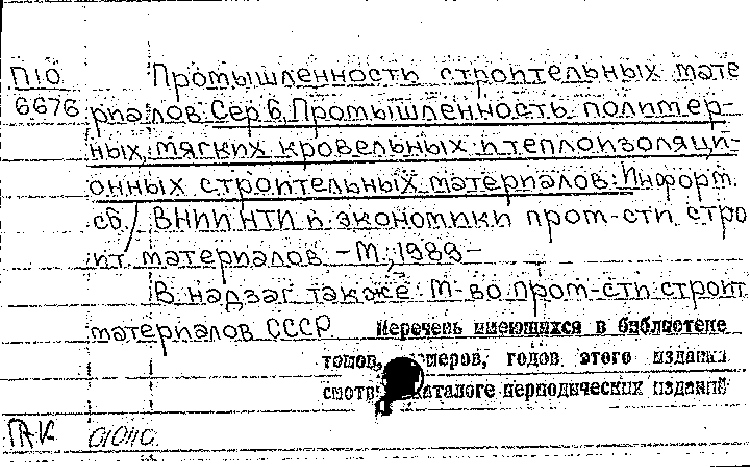 П10 Промышленность строительных мате
6676 риалов. Сер 6. Промышленность полимер-
ных, мягких кровельных и теплоизоляци-
онных строительных материалов: Информ.
сб / ВНИИ НТИ и экономики пром-сти стро
ит. материалов - М., 1989 -
В надзаг также: М-во пром-сти строит
материалов СССР Перечень имеющихся в библиотеке
томов, номеров, годов этого издания
смотр каталоге периодических изданий